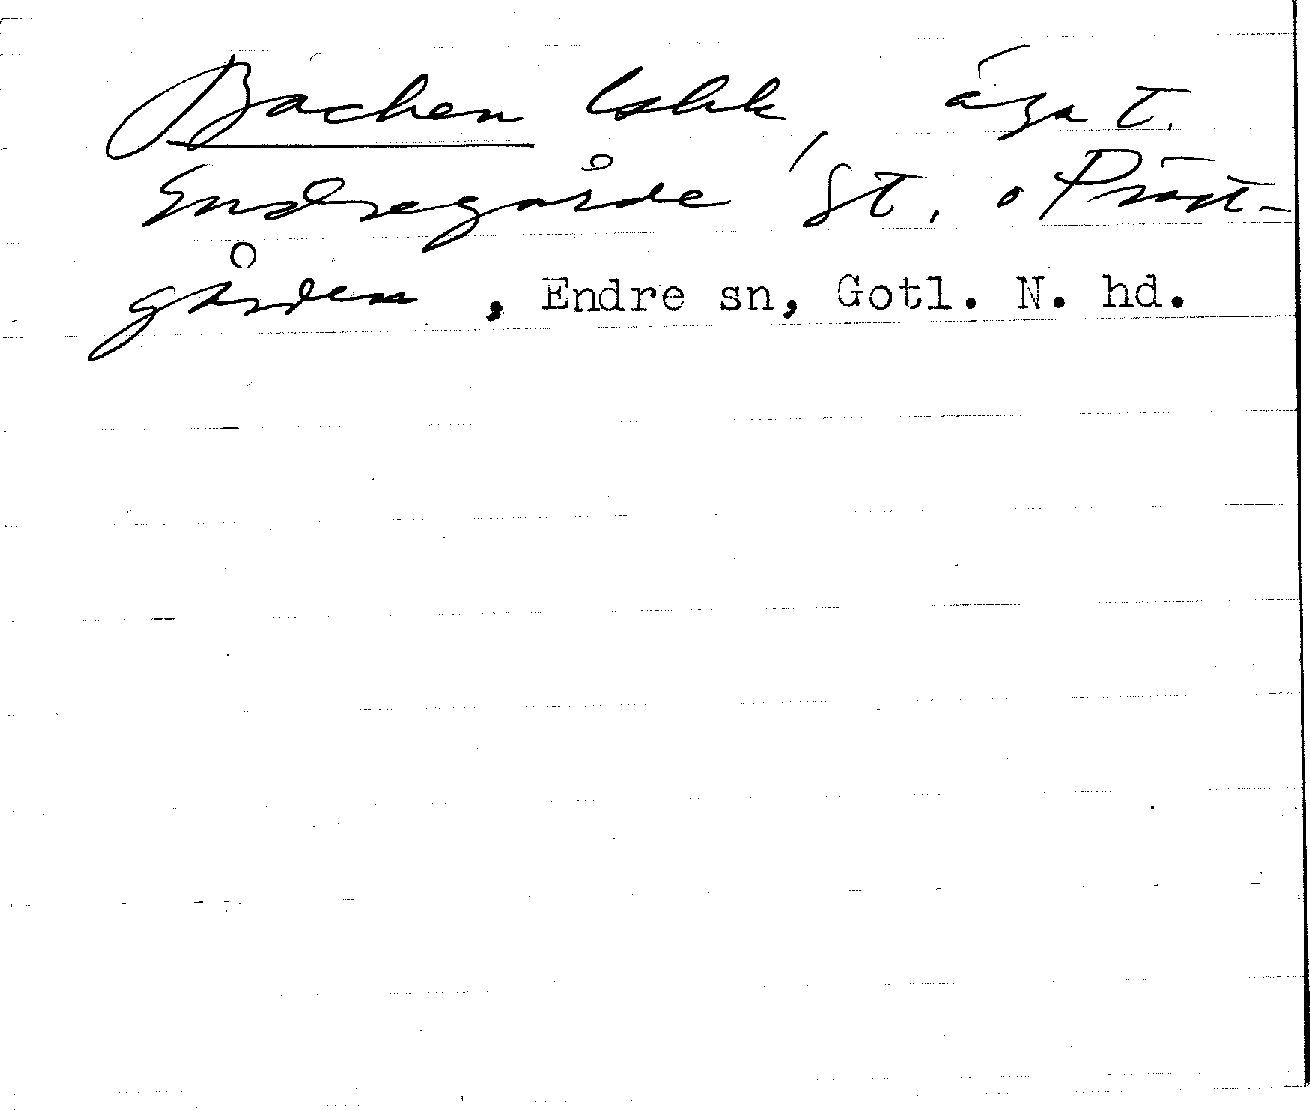 Backen, äga t.
Endregårde St. o Präst-
gården, Endre sn, Gotl. N. hd.